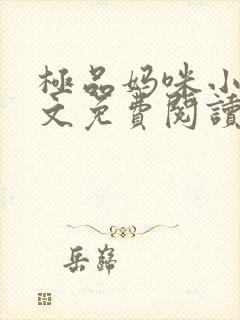 極品妈咪小
文免費閱讀
岳巋